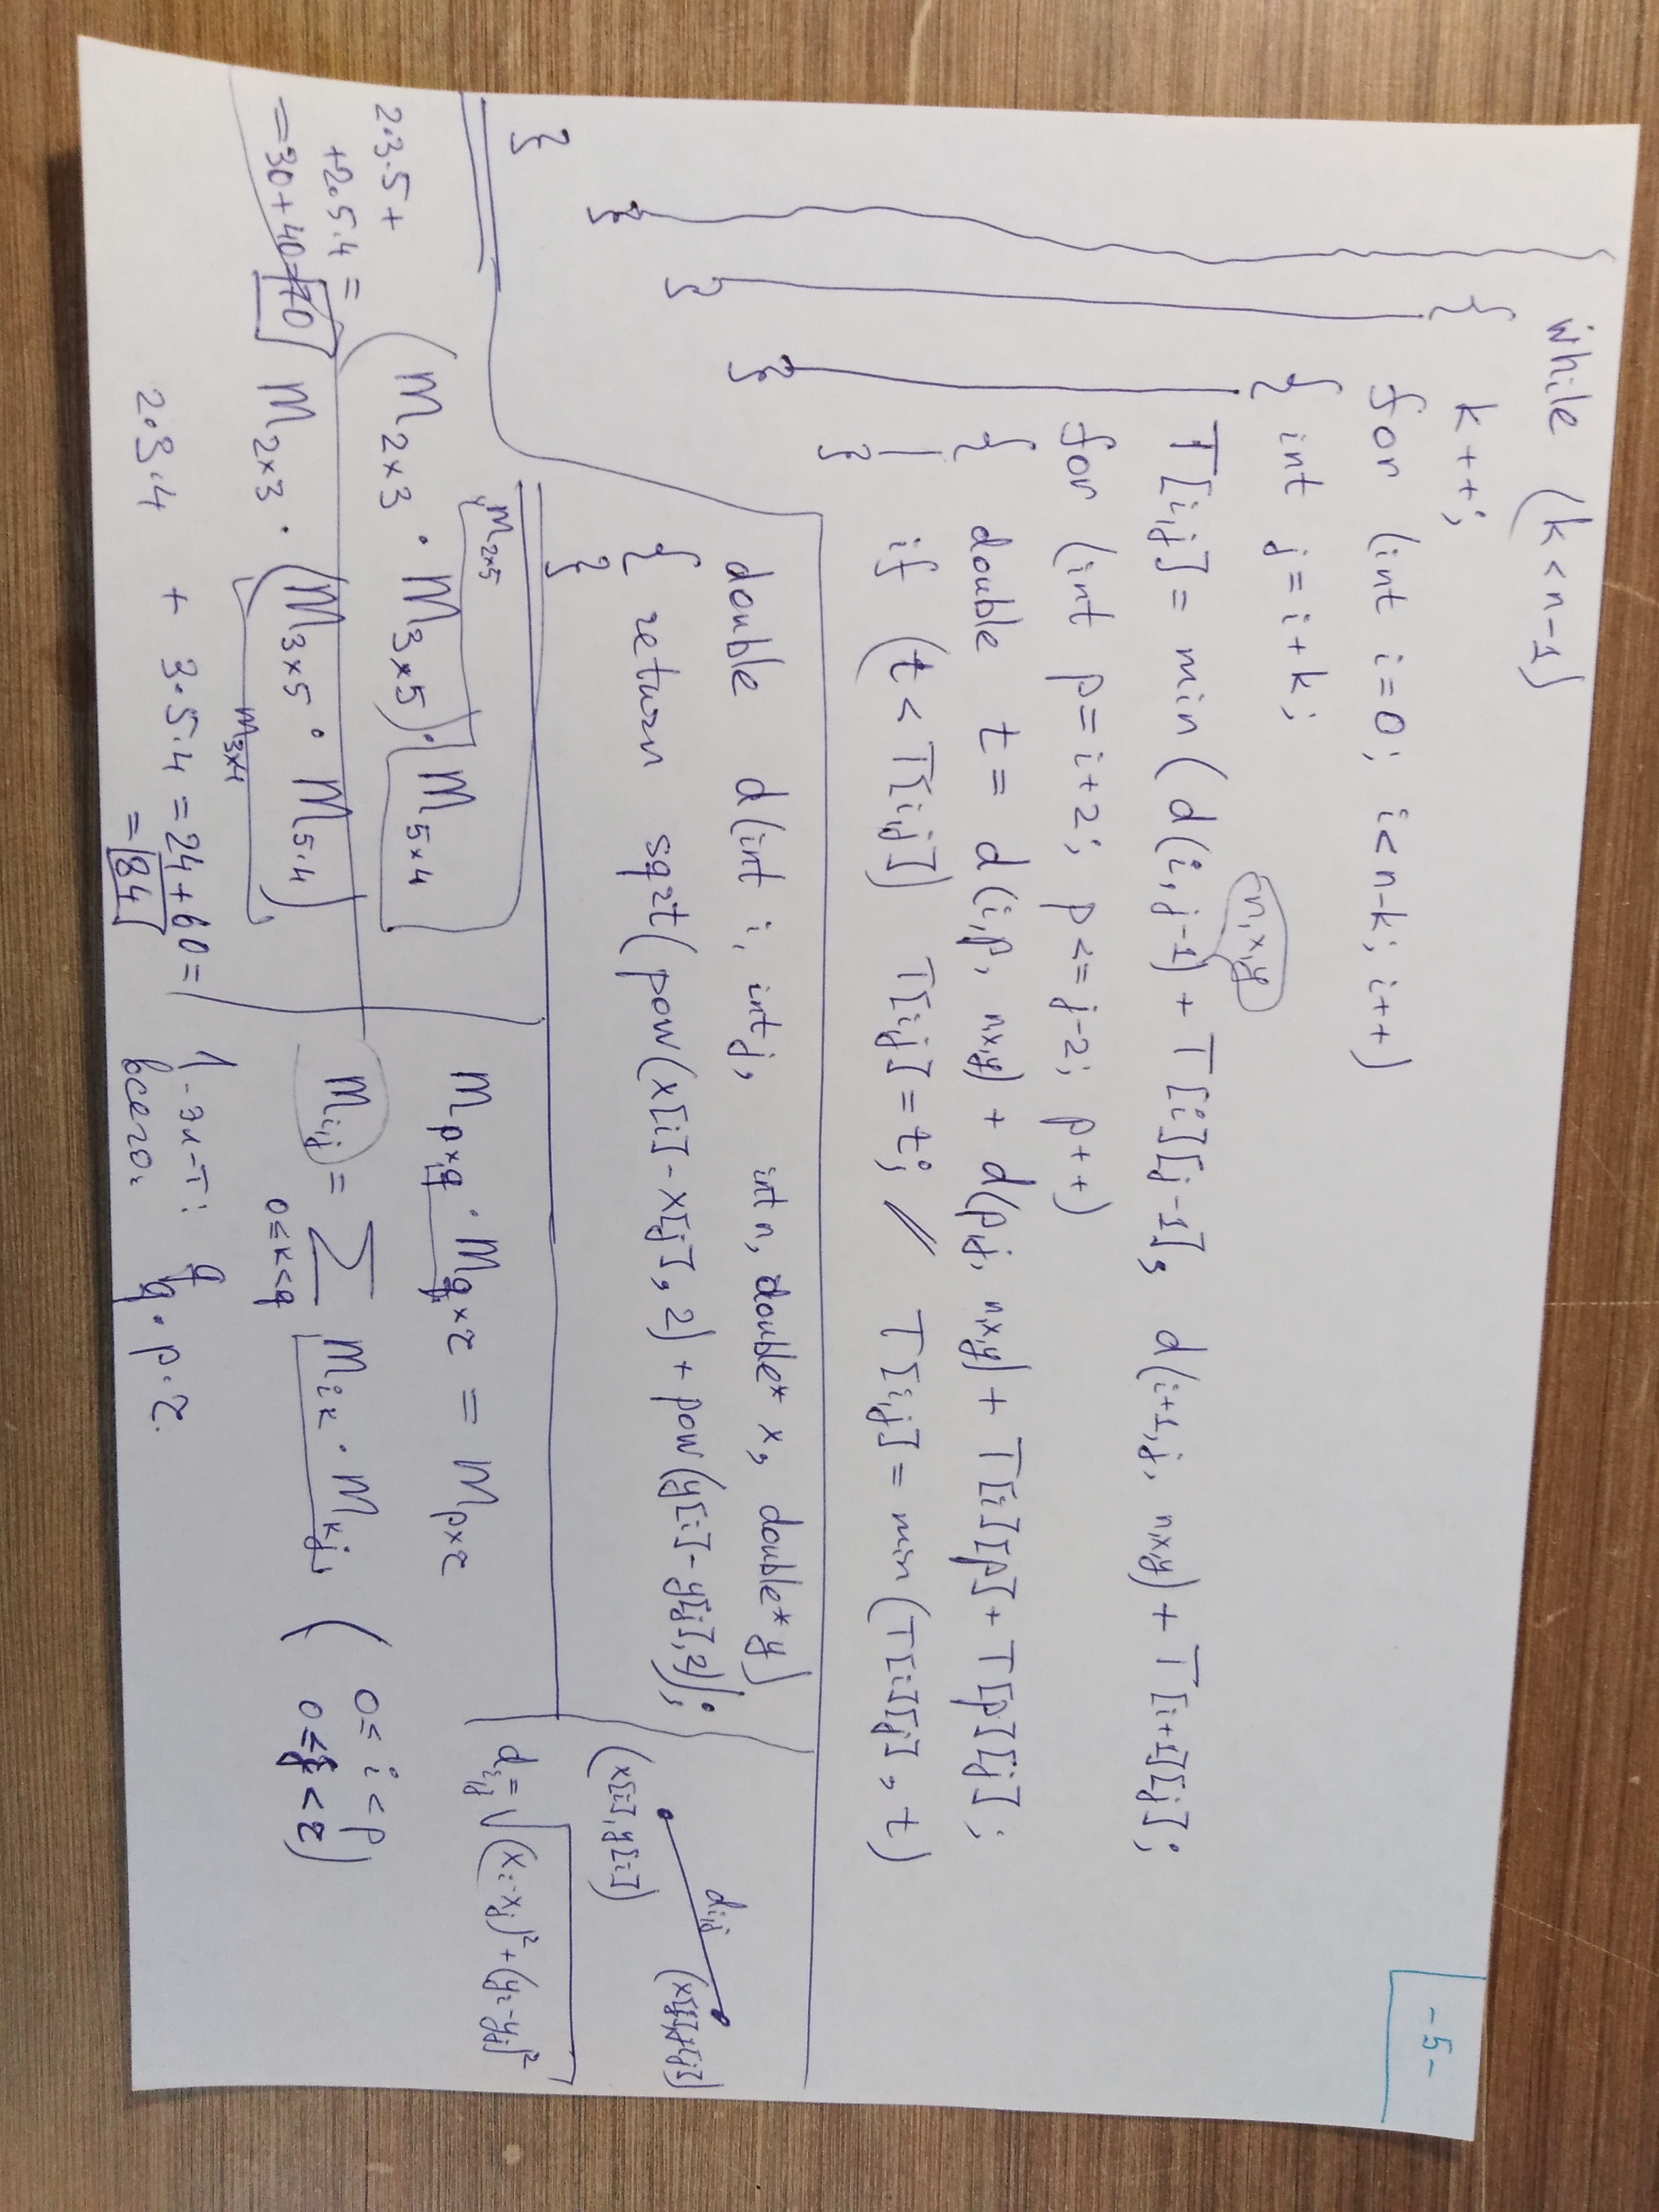 while (k<n-1)
{ k++;
-5-
for (int i=0; i<n-k; i++)
{ int j=i+k;
n,x,y
T[i,j]= min ( d(i, j-1) + T[i][j-1], d(i+1,j, n,x,y) + T[i+1][j];
for (int p=i+2; p<=j-2; p++)
{ double t= d(i,p, n,x,y) + d(p,j, n,x,y) + T[i][p]+ T[p][j];
if (t<T[i,j]) T[i,j]=t; // T[i,j]= min (T[i][j], t)
}
}
}
}
}
double d(int i, int j, int n, double* x, double* y)
{ return sqrt(pow(x[i]-x[j], 2) + pow(y[i]-y[j],2));
}
di,j
(x[j],y[j])
(x[i], y[i])
di,j=√(xi-xj)²+(yi-yj)²
M2×5
(M2×3 · M3×5) · M5×4
2·3·5+
+2·5·4=
=30+40=70
M2×3 · (M3×5 · M5·4)
M3×4
2·3·4 + 3·5·4 = 24+60=
=84
Mp×q · Mq×r = Mp×r
Mi,j = Σ Mik · Mkj, ( 0≤ i<p
0≤k<q 0≤j<r)
1-эл-т: q
всего: q·p·r.